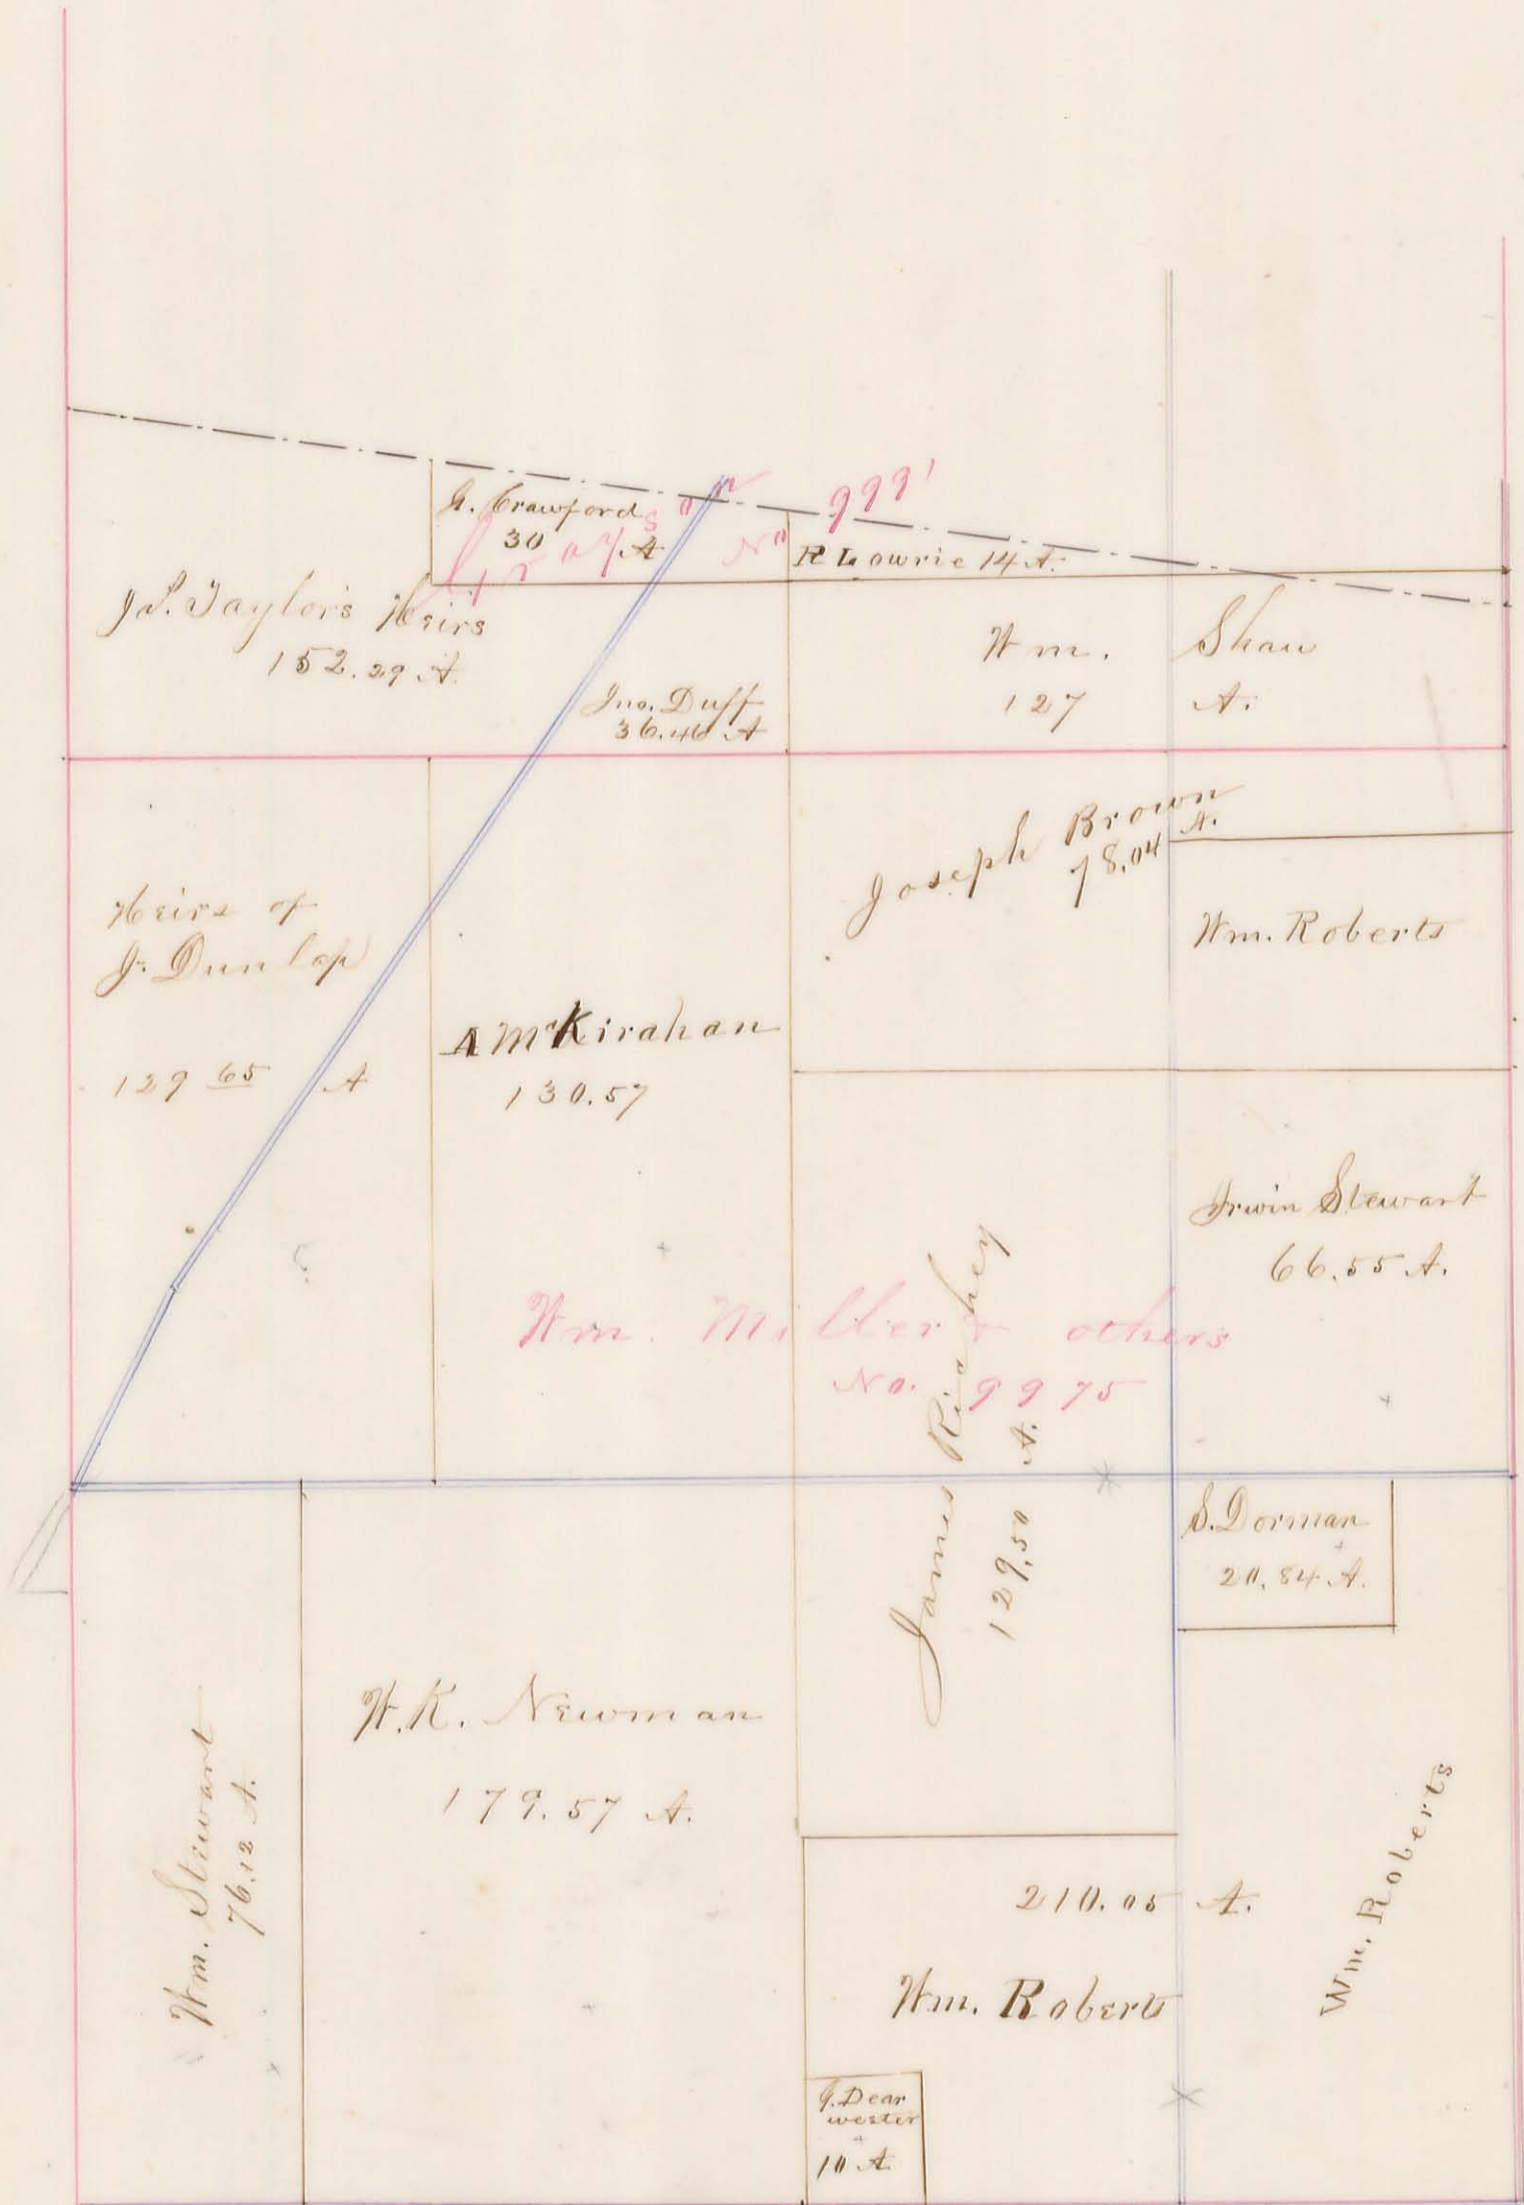 G. Crawford
30 A
No 999'
R Lowrie 14 A.
J.S. Taylor's Heirs
152.29 A.
Jno. Duff
36.46 A
Wm. Shaw
127 A.
Joseph Brown
78.04 A.
Heirs of
J. Dunlap
129 65 A
A McKirahan
130.57
Wm. Roberts
Irwin Stewart
66.55 A.
Wm. Miller & others
No. 9975
James Richey
129.50 A.
S. Dorman
20.84 A.
Wm. Stewart
76.12 A.
W.K. Newman
179.57 A.
210.05 A.
Wm. Roberts
Wm. Roberts
G. Dear
wester
10 A